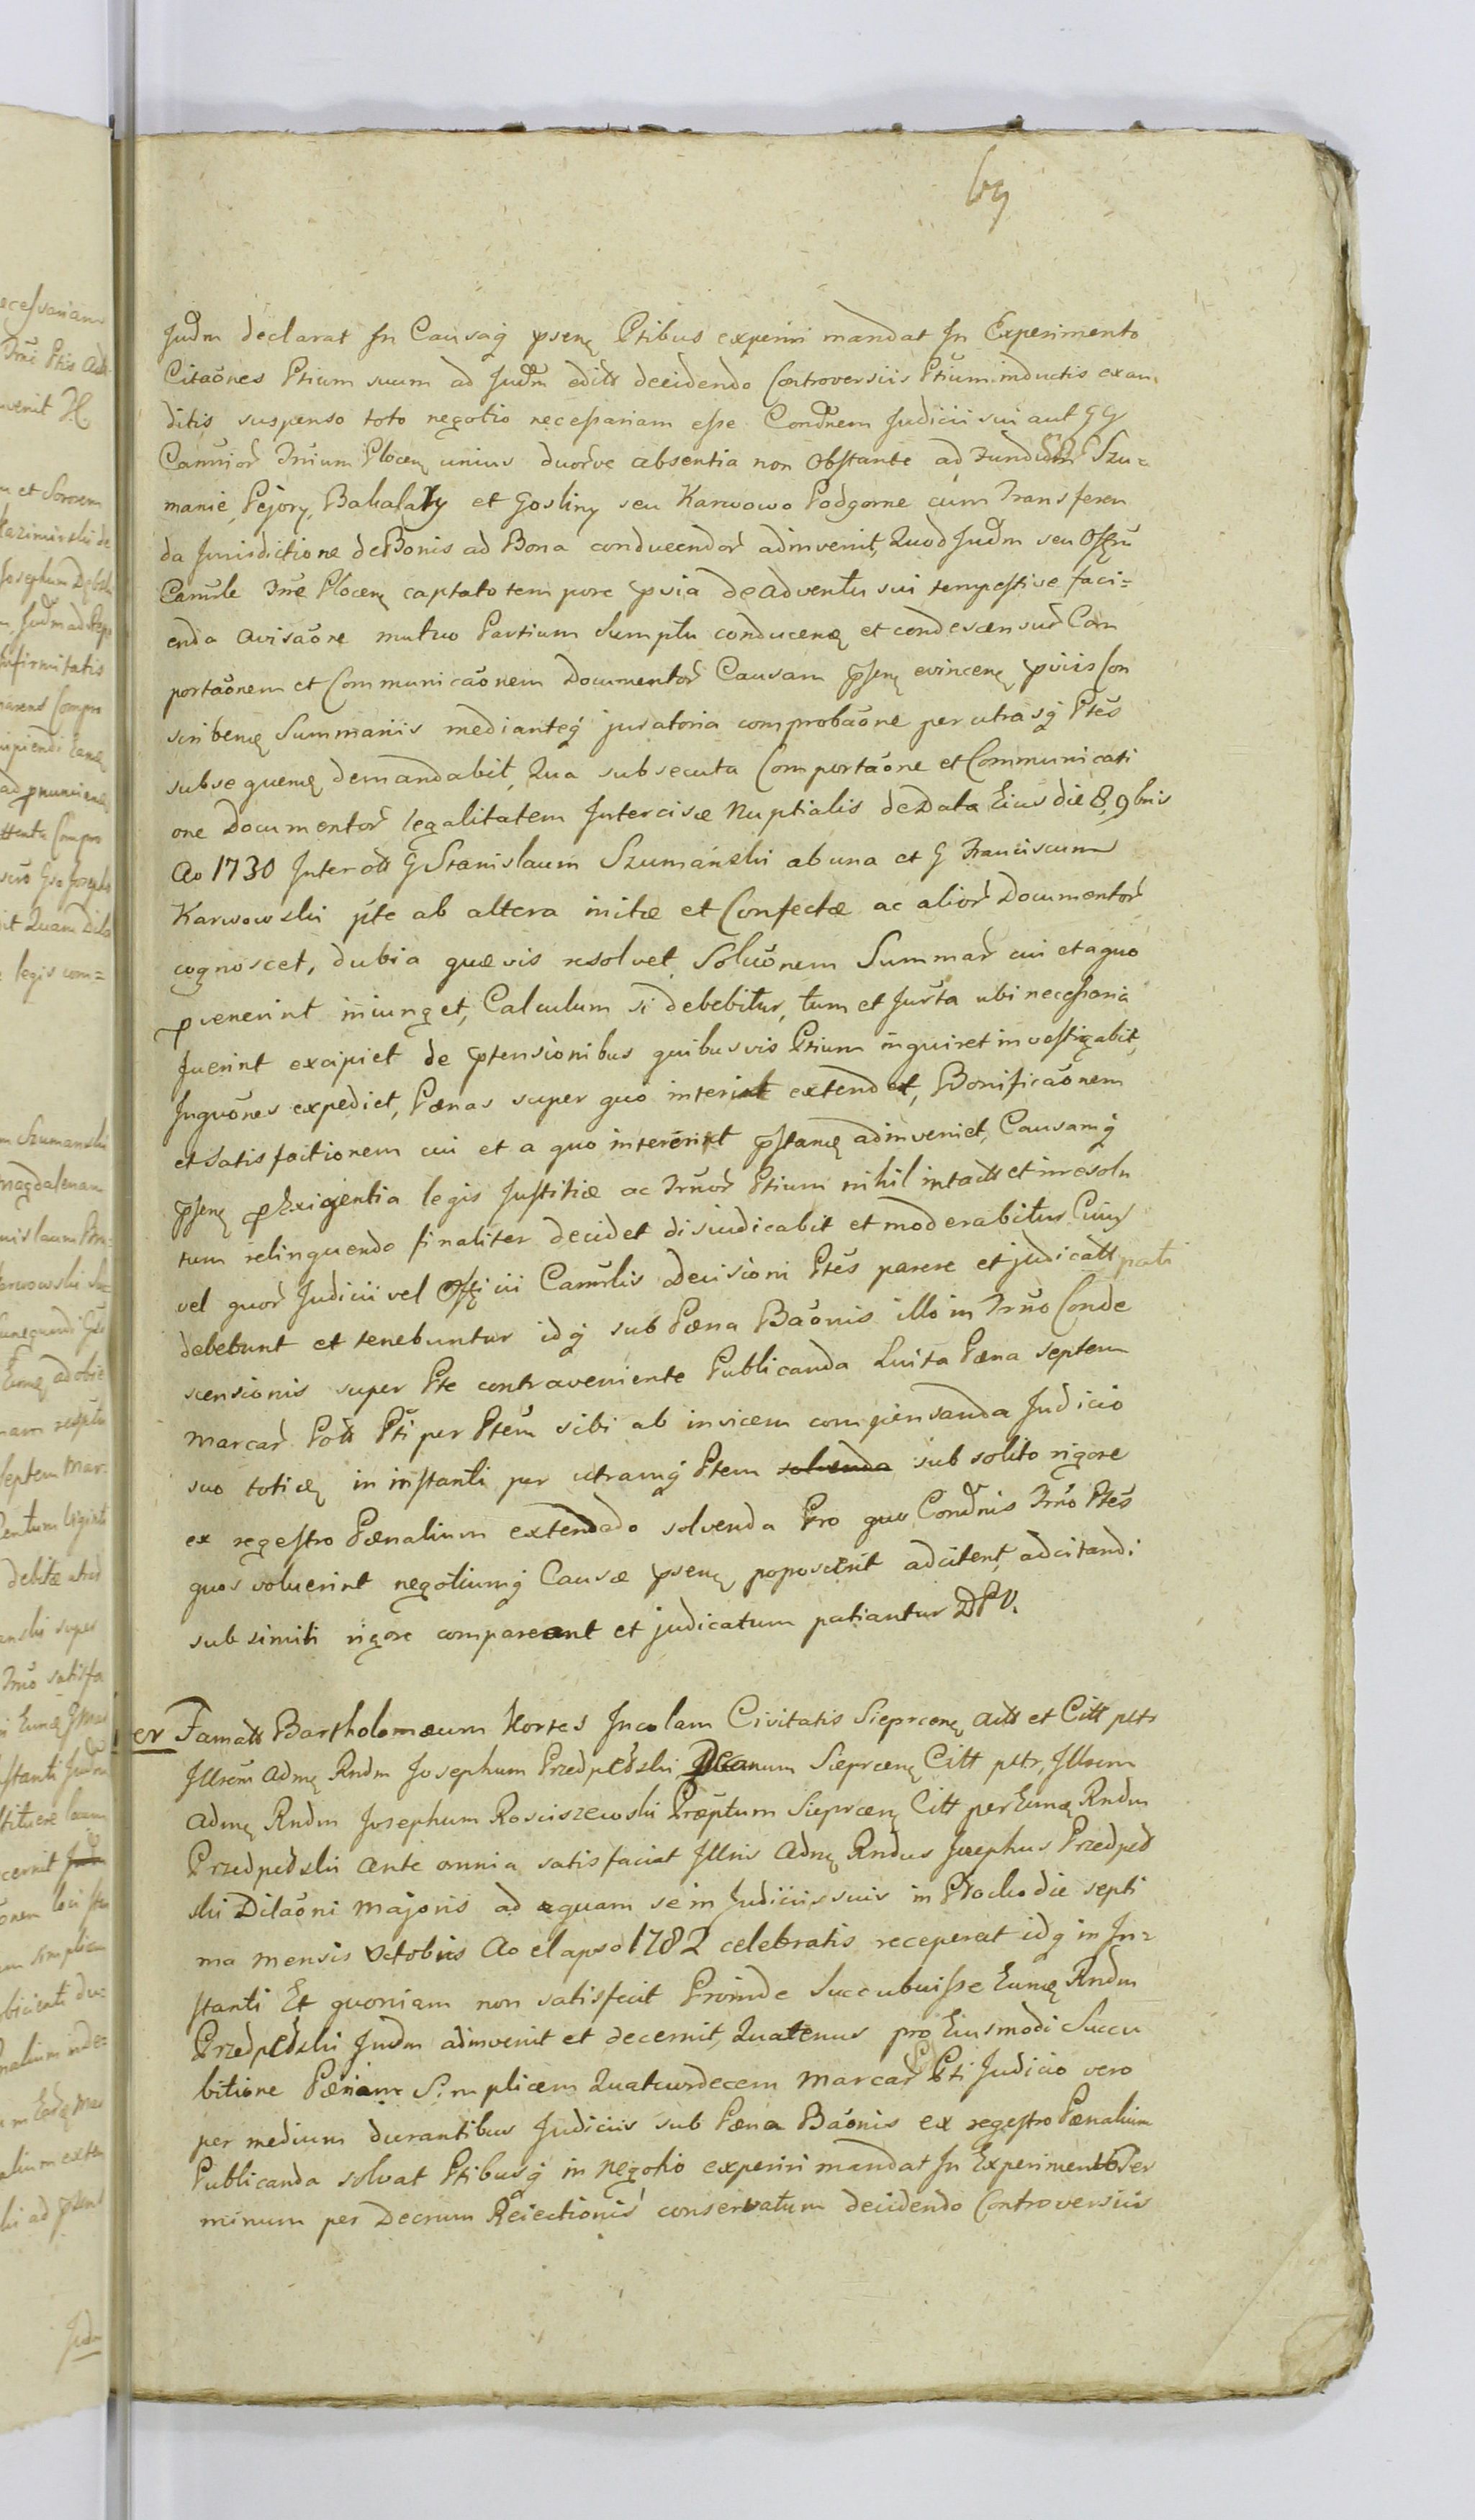 69
Judm declarat In Causaq psenę Ptibus experiri mandat In Experimento
Citaōnes Ptium suum ad Judm editt decidendo Controversiis Ptium inductis exau-
ditis suspenso toto negotio necessariam esse Condnem Judicii sui aut GG
Camrior Trrium Plocenę unius duorve absentia non obstante ad Fundum Szu-
manie, Pejory, Bahalaty et Gosliny seu Karwowo Podgorne cum Transferen
da Jurisdictione de Bonis ad Bona conducendor adinvenit, Quod Judm seu Offiu
Camrle Trre Plocenę captato tempore pvia de adventu sui tempestive faci=
enda avisaōne mutuo Partium Sumptu conducenę et condescensur Com
portaōnem et Communicaōnem Documentor Causam psenę evincenę pviis Con
scribenę Summariis medianteq juratoria comprobaōne per utrasq Ptes
subsequenę demandabit, Qua subsecuta Comportaōne et Communicati
one Documentor legalitatem Intercisæ Nuptialis de Data Eius die 8, 9bris
Ao 1730 Inter ott G Stanislaum Szumański ab una et G Franciscum
Karwowski pte ab altera initæ et Confectæ ac alior Documentor
cognoscet, dubia quævis resolvet Soluōnem Summar cui et a quo
pvenerint iniunget, Calculum si debebitur, tum et Jurta ubi necessaria
fuerint excipiet de ptensionibus quibusvis Ptium inquiret investigabit,
Inquōnes expediet, Pœnas super quo interint extendet, Bonificaōnem
et Satisfactionem cui et a quo intererint pstanę adinveniet, Causamq
psenę p Exigentia legis Justitiæ ac Trrior Ptium nihil intactt et inresolu
tum relinquendo finaliter decidet disiudicabit et moderabitur Cuius
vel quor Judicii vel Officii Camrlis Decisioni Ptes parere et judicatt pati
debebunt et tenebuntur idq sub Pœna Baōnis illo in Trrno Conde
scensionis super Pte contraveniente Publicanda Luita Pœna septem
Marcar Poll Pti per Ptem sibi ab invicem compensanda Judicio
suo toticę in instanti per utramq Ptem solvenda sub solito rigore
ex regestro Pœnalium extendendo solvenda Pro quo Condnis Trrno Ptes
quos voluerint negotiumq Causæ psenę poposcerit adcitent, adcitandi
sub simili rigore compareant et judicatum patiantur DPV.
er Famatt Bartholomæum Kortes Incolam Civitatis Sieprcenę Actt et Citt pltr
Jllrem Admę Rndm Josephum Przedpełski Decanum Sieprcenę Citt pltr, Jllrem
Admę Rndm Josephum Rosciszewski Præptum Sieprcenę Citt per Eumę Rndm
Przedpełski ante omnia satisfaciat Jllris Admę Rndus Josephus Przedpeł
ski Dilaōni majoris ad quam se in Judiciis suis in Płocko die septi
ma mensis Octobris Ao elapso 1782 celebratis receperat idq in In=
stanti Et quoniam non satisfecit Proinde Succubuisse Eumę Rndm
Przedpełski Judm adinvenit et decernit, Quatenus pro Eiusmodi Succu
bitione Pœnam Simplicem Quatuordecem Marcar Pti Judicio vero
per medium durantibus Judiciis sub Pœna Baōnis ex regestro Pœnalium
Publicanda solvat Ptibusq in negotio experiri mandat In Experimento Ter
minum per Decrum Reiectionis conservatum decidendo Controversiis